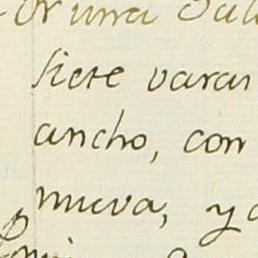 Por una Sal
siete varas
ancho, con
nueva, y a